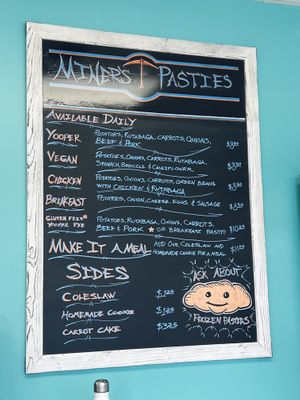 MINERS PASTIES
AVAILABLE DAILY
YOOPER
POTATOES, RUTABAGA, CARROTS, ONIONS,
BEEF & PORK
VEGAN
POTATOES, ONIONS, CARROTS, RUTABAGA,
SPINACH, BROCCOLI & CAULIFLOWER
CHICKEN
POTATOES, ONIONS, CARROTS, GREEN BEANS
WITH CHICKEN & RUTABAGA
BREAKFAST
POTATOES, ONION, CHEESE, EGGS & SAUSAGE
GLUTEN FREE*
POTATOES, RUTABAGA, ONIONS, CARROTS,
BEEF & PORK * OR BREAKFAST PASTY!
MAKE IT A MEAL
ADD OUR COLESLAW AND
HOMEMADE COOKIE FOR A MEAL
SIDES
COLESLAW
HOMEMADE COOKIE
CARROT CAKE
ASK ABOUT
FROZEN PASTIES